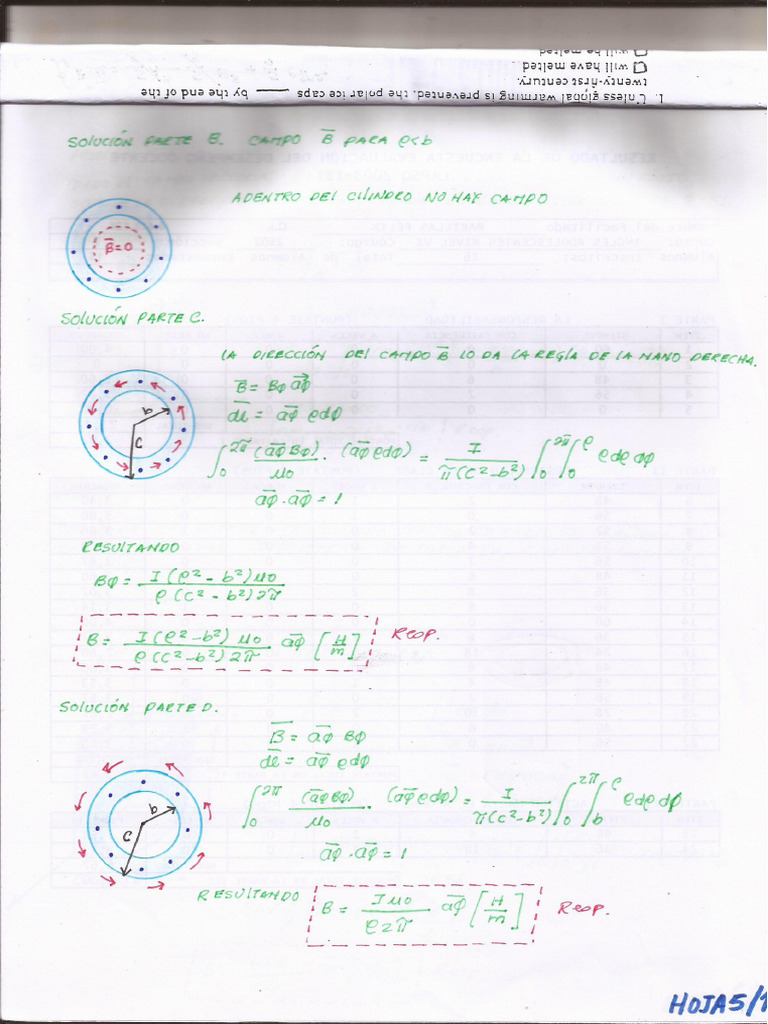 1. Unless global warming is prevented, the polar ice caps ____ by the end of the
twenty-first century.
☐ will have melted
☐ will be melted
SOLUCIÓN PARTE B. CAMPO B̄ PARA ρ<b
ADENTRO DEL CILINDRO NO HAY CAMPO
B̄=0
SOLUCIÓN PARTE C.
LA DIRECCIÓN DEL CAMPO B̄ LO DA LA REGLA DE LA MANO DERECHA.
B = Bφ a⃗φ
d̄l = āφ ρdφ
∫₀^2π (āφ Bφ)/μ₀ · (āφ ρdφ) = I/π(c²-b²) ∫₀^2π ∫₀^ρ ρdρ dφ
āφ · āφ = 1
c
RESULTANDO
Bφ = I(ρ² - b²)μ₀ / ρ(c² - b²)2π
B = I(ρ²-b²) μ₀ / ρ(c²-b²)2π āφ [H/m] Resp.
SOLUCIÓN PARTE D.
B̄ = āφ Bφ
d̄l = āφ ρdφ
∫₀^2π (āφ Bφ)/μ₀ · (āφ ρdφ) = I/π(c²-b²) ∫₀^2π ∫_b^ρ ρdρ dφ
āφ · āφ = 1
c
RESULTANDO B = Iμ₀/ρ2π āφ [H/m] Resp.